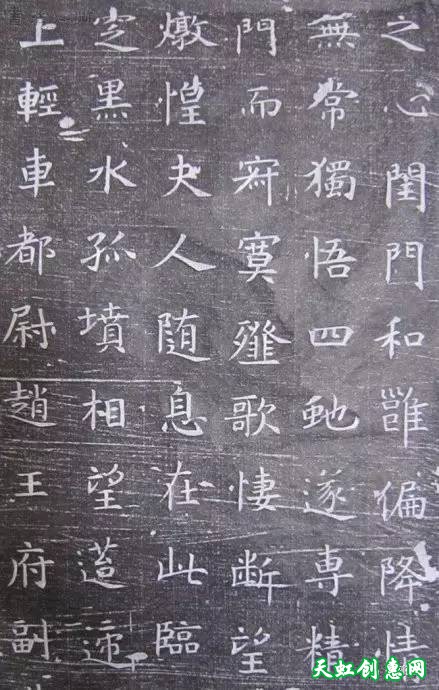 之心閨門和雝偏降情
無常獨悟四虵遂專精
門而寂寞薤歌悽斷望
燉惶夫人随息在此臨
窆黑水孤墳相望迢遰
上輕車都尉趙王府副
天虹创意网